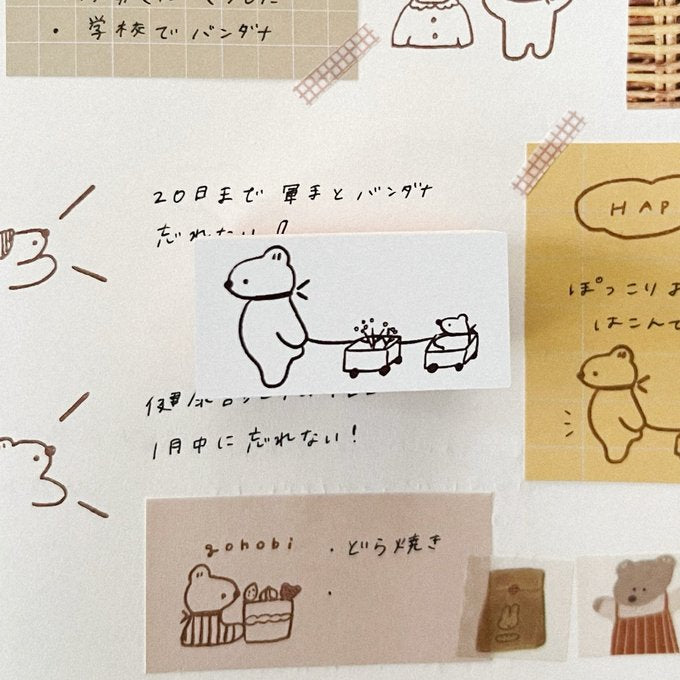 ・学校でバンダナ
20日まで 軍手とバンダナ
忘れない!
HAP
ぽっこりお
はこんで
1月中に忘れない!
gohobi
・どら焼き
・